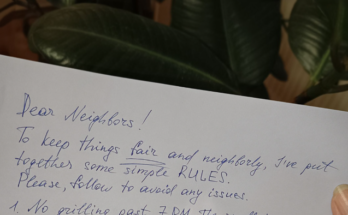 Dear Neighbors!
To keep things fair and neighborly, I've put
together some simple RULES.
Please, follow to avoid any issues.
1. No grilling past 7 PM.